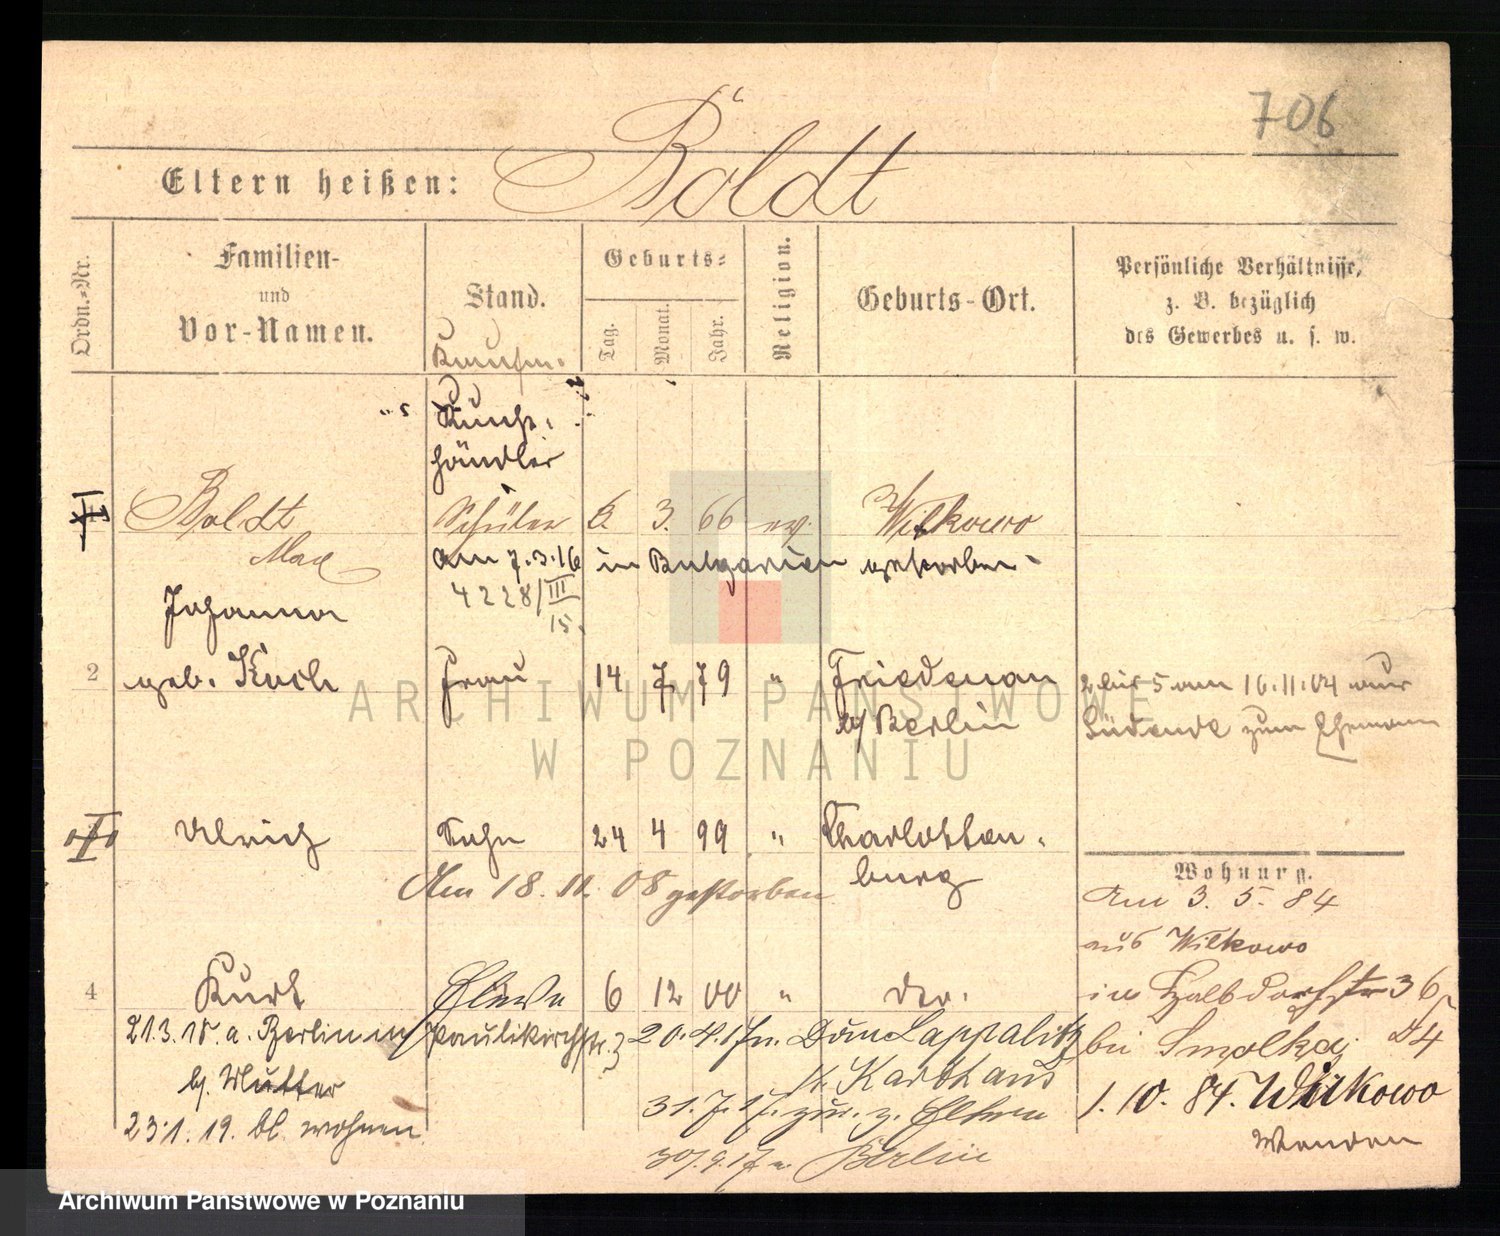 706
Eltern heißen: Boldt
Ordn.-Nr.
Familien-
und
Vor-Namen.
Stand.
Geburts-
Tag.
Monat.
Jahr.
Religion.
Geburts-Ort.
Persönliche Verhältnisse,
z. B. bezüglich
des Gewerbes u. s. w.
händler
Boldt Schüler 6. 3. 66 ev. Witkowo
Max
am 7.3.16 in Bulgarien gestorben
4228/III
15.
Johanna
2 geb. Koch Frau 14 7 79 " Friedenau
b/ Berlin
2 bis 5 am 16.11.04 nach
Südende zum Ehemann
Ulrich Sohn 24 4 99 " Charlotten-
burg
Am 18. 11. 08 gestorben
Wohnung.
Am 3. 5. 84
aus Witkowo
4 Kurt Eleve 6 12 00 " do.
in Halbdorfstr 36
bei Smolka
1. 10. 84. Witkowo
Wenden
21.3.18. a. Berlin Paulikirchstr. 3
b/ Mutter
23.1.19. bl. wohnen
20.4.17 n. Dom Lappalitz
Kr. Karthaus
31.7.17. zur. z. Eltern
30.9.17 n. Berlin
ARCHIWUM PAŃSTWOWE
W POZNANIU
Archiwum Państwowe w Poznaniu